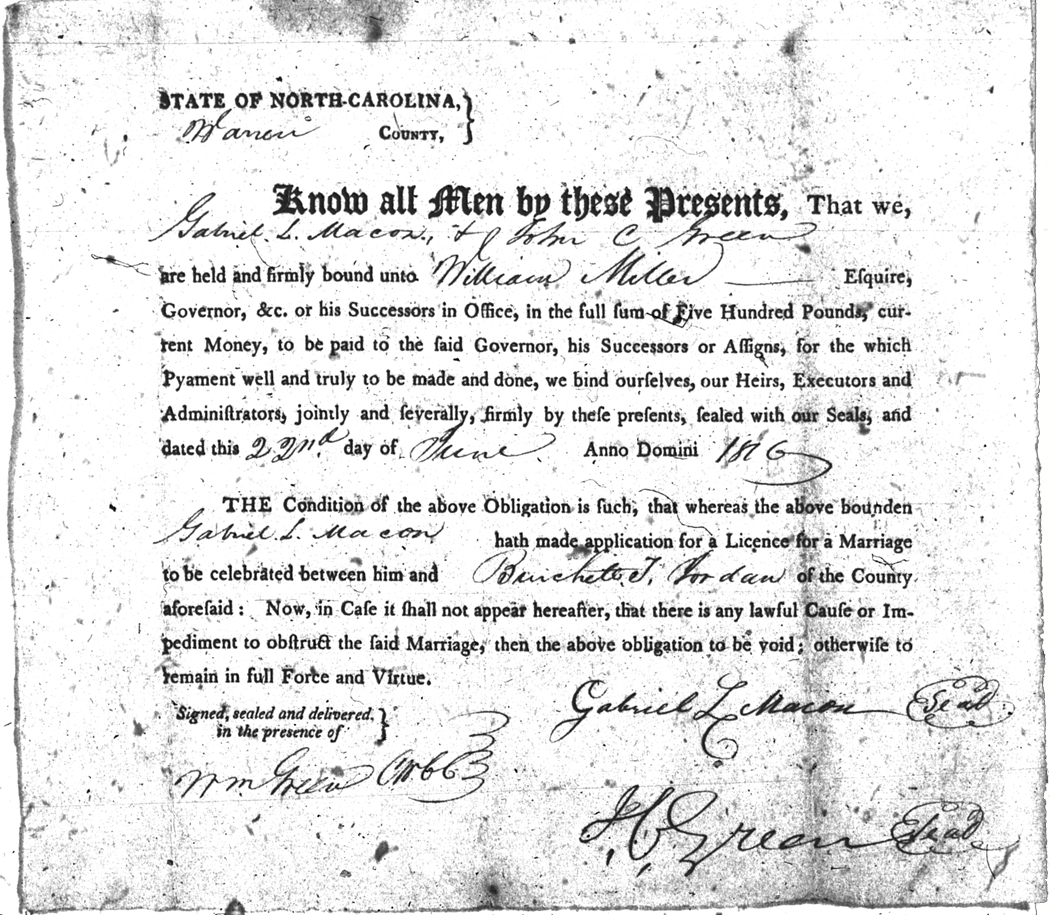 STATE OF NORTH-CAROLINA,
Warren COUNTY,
Know all Men by these Presents, That we,
Gabriel L. Macon, & John C Green
are held and firmly bound unto William Miller Eſquire,
Governor, &c. or his Succeſſors in Office, in the full ſum of Five Hundred Pounds, cur-
rent Money, to be paid to the ſaid Governor, his Succeſſors or Aſſigns, for the which
Pyament well and truly to be made and done, we bind ourſelves, our Heirs, Executors and
Adminiſtrators, jointly and ſeverally, firmly by theſe preſents, ſealed with our Seals, and
dated this 22nd. day of June. Anno Domini 1816
THE Condition of the above Obligation is ſuch, that whereas the above bounden
Gabriel L. Macon hath made application for a Licence for a Marriage
to be celebrated between him and Burchett T. Jordan of the County
aforeſaid: Now, in Caſe it ſhall not appear hereafter, that there is any lawful Cauſe or Im-
pediment to obſtruct the ſaid Marriage, then the above obligation to be void; otherwiſe to
remain in full Force and Virtue.
Gabriel L Macon Seal
Signed, sealed and delivered,
in the presence of
Wm Green CWCC
J, C, Green Seal